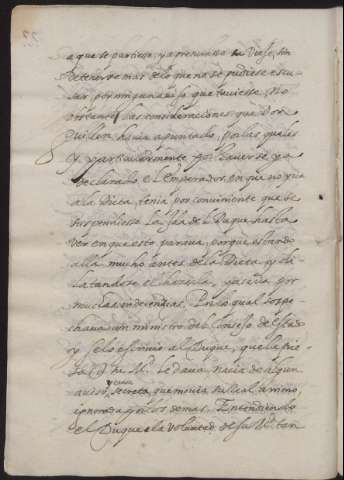 a que se partiese, y apresurase su Viaje, sin
detenerse mas delo que no se pudiese escu-
sar por ninguna cosa que tuuiese. No
obstante las consideraciones que Don
Guillen hauia apuntado, por las quales
y particularmente por hauerse ya
declarado el Emperador, en que no yria
ala Dieta, tenia por conuiniente que se
suspendiesse la yda del Duque hasta
ver en que esto paraua, porque estando
alla mucho antes dela Dieta, y di-
latandose el hazerla, yaziera por
muchas indecencias. Por lo qual sospe-
chaua un ministro del Consejo de Estado
y se lo escriuio al Duque, que la prie-
sa que su Md. le daua nacia de algun
auiso, y causa secreta, que mouia su Real animo,
ignorada por los demas. Entendiendo
el Duque la voluntad de su Md. tan